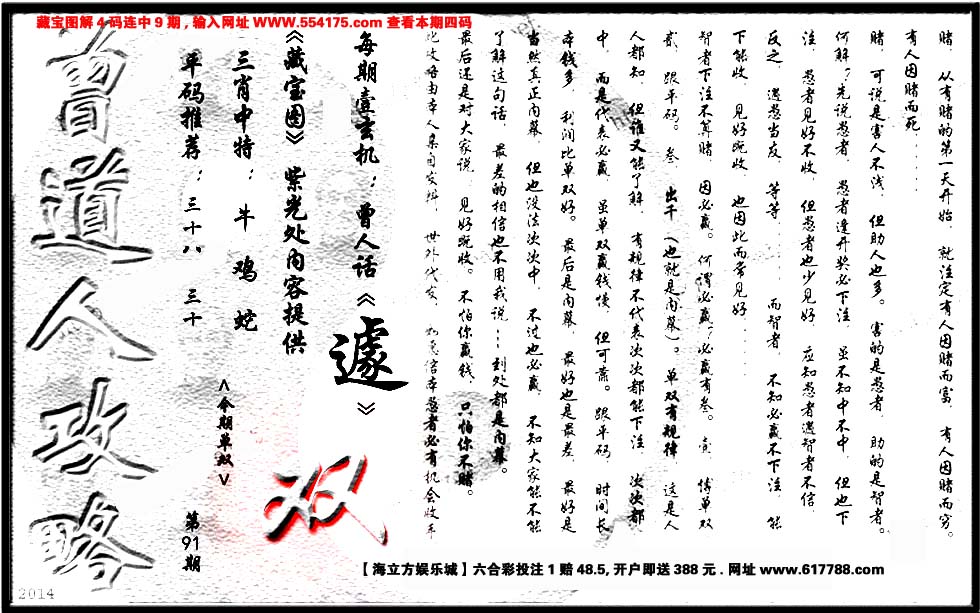 藏宝图解4码连中9期，输入网址 WWW.554175.com 查看本期四码
赌，从有赌的第一天开始，就注定有人因赌而富，有人因赌而穷。
有人因赌而死.....
赌，可说是害人不浅，但助人也多。害的是愚者，助的是智者。
何解？先说愚者，愚者逢开奖必下注，虽不知中不中，但也下
注，愚者见好不收，但愚者也少见好，应知愚者遇智者不信，
反之，遇愚当友，等等......而智者，不知必赢不下注，能
下能收，见好既收，也因此而常见好......
智者下注不算赌，因必赢。何谓必赢？必赢有叁。壹，博单双
贰，跟平码。叁，出千（也就是内幕）。单双有规律，这是人
人都知，但谁又能了解，有规律不代表次次都能下注，次次都
中，而是代表必赢，虽单双赢钱慢，但可靠。跟平码，时间长
本钱多，利润比单双好。最后是内幕，最好也是最差，最好是
当然真正内幕，但也没法次次中，不过也必赢，不知大家能不
了解这句话，最差的相信也不用我说...到处都是内幕。
最后还是对大家说，见好既收。不怕你赢钱，只怕你不赌。
每期壹玄机：曾人话《遽》
《藏宝图》紫光处内容提供
三肖中特：牛 鸡 蛇
单码推荐：三十八 三十
<今期单双>
双
第91期
曾道人攻略
2014
【海立方娱乐城】六合彩投注1赔48.5,开户即送388元.网址www.617788.com